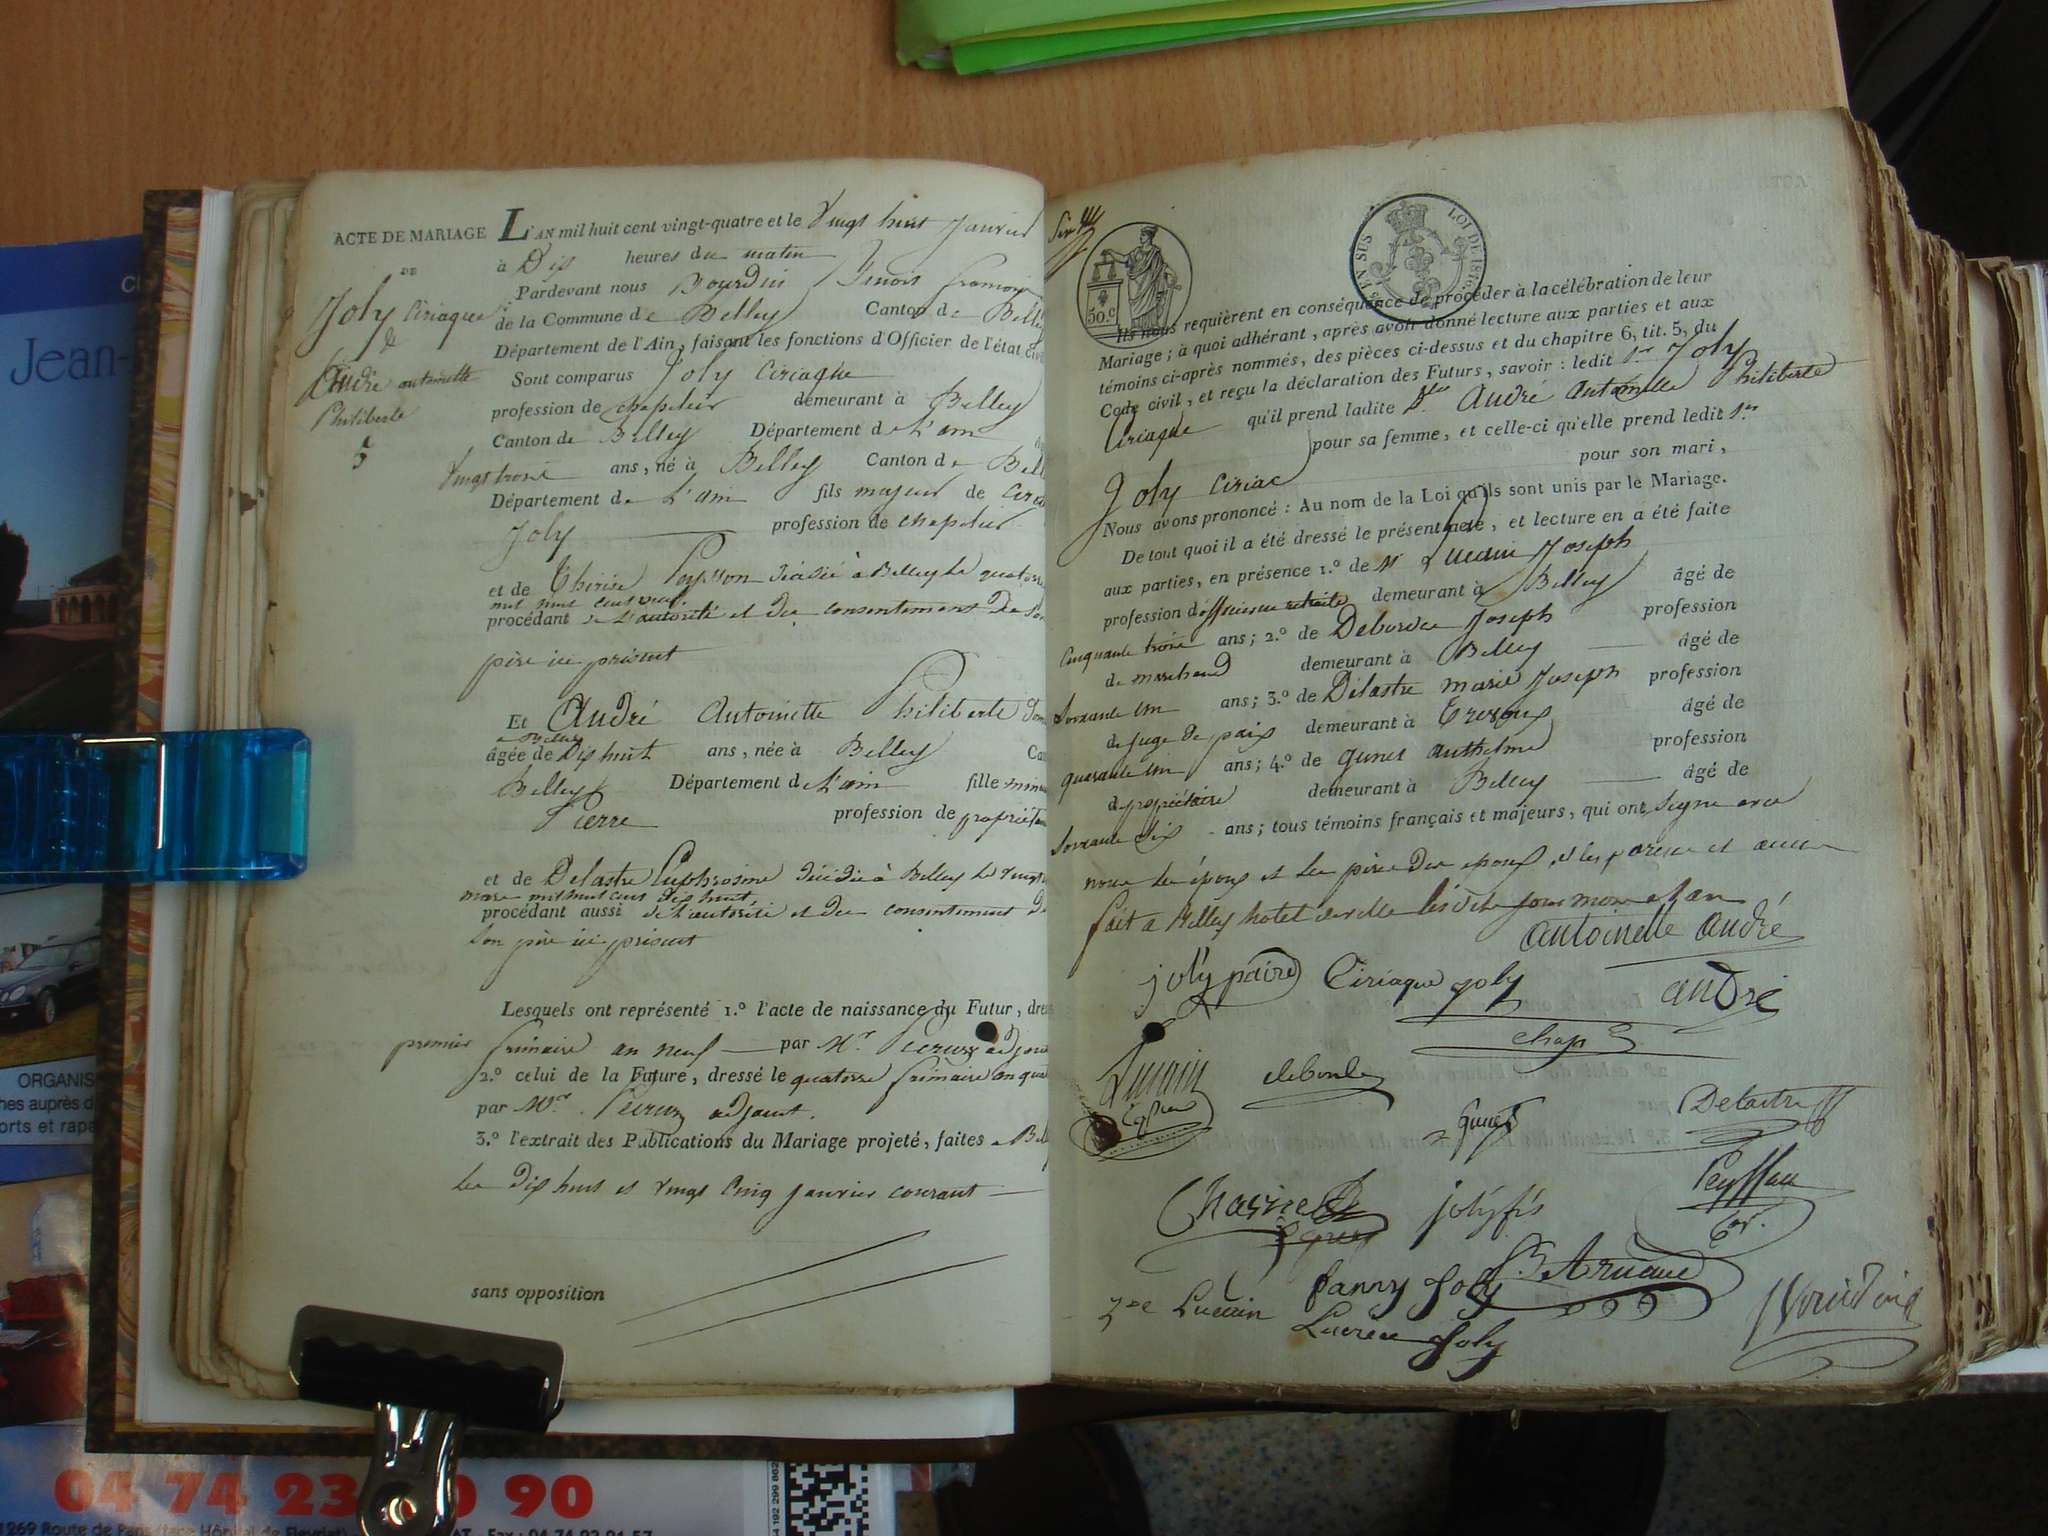 ACTE DE MARIAGE
DE
Joly Ciriaque
&
André antoinette
Philiberte
5
L'AN mil huit cent vingt-quatre et le Vingt huit Janvier
à Dix heures du matin
Pardevant nous Bourdin
de la Commune de Belley Canton de Belley
Département de l'Ain, faisant les fonctions d'Officier de l'état civil
Sont comparus Joly Ciriaque
profession de chapelier demeurant à Belley
Canton de Belley Département de L'ain
Vingt trois ans, né à Belley Canton de Bell
Département de L'ain fils majeur de Ciria
Joly profession de chapelier
et de Thérèse Peysson décédée à Belley le quatorze
mil huit cent
procédant de L'autorité et du consentement de son
père ici présent
Et André Antoinette Philiberte
a Belley
âgée de Dix huit ans, née à Belley Ca
Belley Département de L'ain fille mineure
Pierre profession de propriéta
et de Delastre Euphrosine décédée à Belley le vingt
mars mil huit cent dix huit
procédant aussi de l'autorité et du consentement de
son père ici présent
Lesquels ont représenté 1.º l'acte de naissance du Futur, dres
premier frimaire an neuf par Mr. Peyruz adjoint
2.º celui de la Future, dressé le quatorze frimaire an qua
par Mr. Peyruz adjoint.
3.º l'extrait des Publications du Mariage projeté, faites a Bell
les dix huit et vingt cinq Janvier courant
sans opposition
30.c
EN SUS
LOI DE 181
Ils nous requièrent en conséquence de procéder à la célébration de leur
Mariage; à quoi adhérant, après avoir donné lecture aux parties et aux
témoins ci-après nommés, des pièces ci-dessus et du chapitre 6, tit. 5, du
Code civil, et reçu la déclaration des Futurs, savoir: ledit Sr Joly
Ciriaque qu'il prend ladite Dlle André Antoinette Philiberte
pour sa femme, et celle-ci qu'elle prend ledit Sr
Joly Ciriac pour son mari,
Nous avons prononcé: Au nom de la Loi qu'ils sont unis par le Mariage.
De tout quoi il a été dressé le présent acte, et lecture en a été faite
aux parties, en présence 1.º de Mr Lucain Joseph
profession d'officier en retraite demeurant à Belley âgé de
Cinquante trois ans; 2.º de Debordee Joseph profession
de marchand demeurant à Belley âgé de
Soixante un ans; 3.º de Delastre marie Joseph profession
de juge de paix demeurant à Trevoux âgé de
quarante un ans; 4.º de Gunet anthelme profession
de propriétaire demeurant à Belley âgé de
Soixante dix ans; tous témoins français et majeurs, qui ont signé avec
nous les époux et les pères des époux et les parens et amis
fait a Belley hotel de ville lesdits jour mois et an
antoinette andré
joly paire Ciriaque joly andré
chap
Lucain Delastre
Gunet
joly fis
Peyssou
Fanny Joly Arnaud
Lucain
Lucrèce Joly
Bourdin
Jean-
ORGANIS
hes auprès d
orts et rapa
04 74 23 0 90